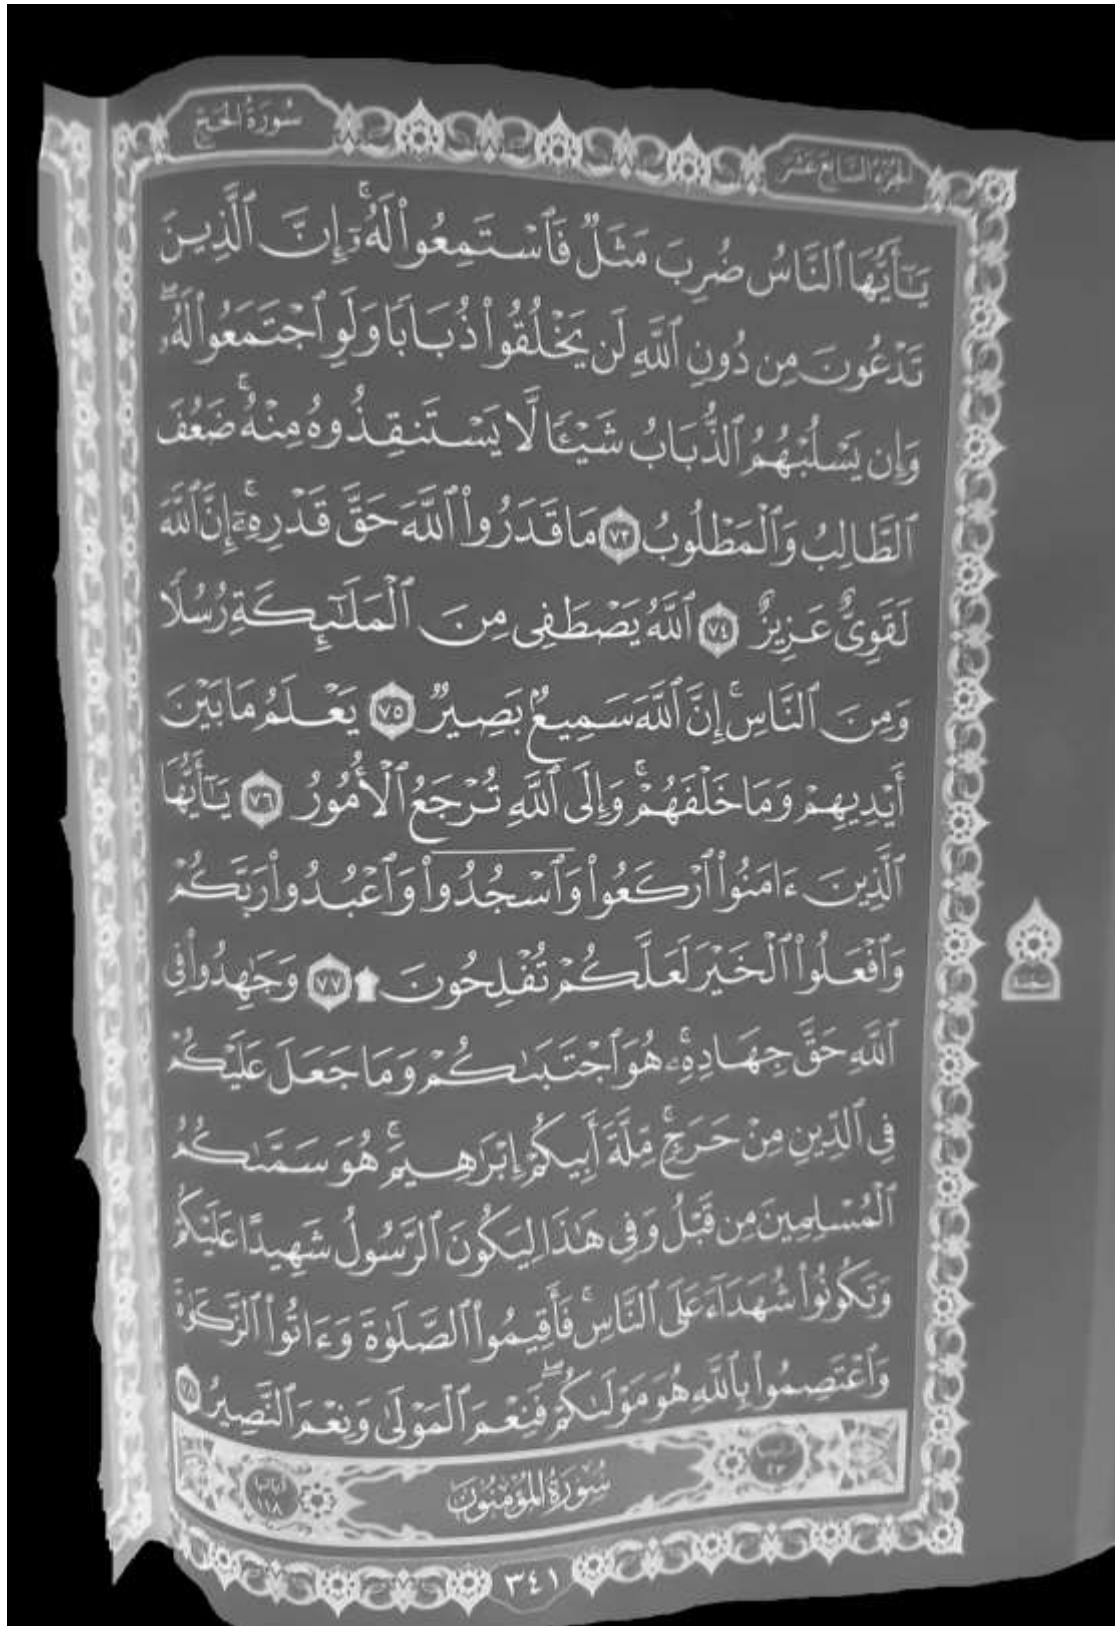 الجزء السابع عشر
سُورَةُ الحَجّ
يَـٰٓأَيُّهَا ٱلنَّاسُ ضُرِبَ مَثَلٌ فَٱسْتَمِعُوا۟ لَهُۥٓ ۚ إِنَّ ٱلَّذِينَ
تَدْعُونَ مِن دُونِ ٱللَّهِ لَن يَخْلُقُوا۟ ذُبَابًا وَلَوِ ٱجْتَمَعُوا۟ لَهُۥ ۖ
وَإِن يَسْلُبْهُمُ ٱلذُّبَابُ شَيْـًٔا لَّا يَسْتَنقِذُوهُ مِنْهُ ۚ ضَعُفَ
ٱلطَّالِبُ وَٱلْمَطْلُوبُ ٧٣ مَا قَدَرُوا۟ ٱللَّهَ حَقَّ قَدْرِهِۦٓ ۚ إِنَّ ٱللَّهَ
لَقَوِىٌّ عَزِيزٌ ٧٤ ٱللَّهُ يَصْطَفِى مِنَ ٱلْمَلَـٰٓئِكَةِ رُسُلًا
وَمِنَ ٱلنَّاسِ ۚ إِنَّ ٱللَّهَ سَمِيعٌۢ بَصِيرٌ ٧٥ يَعْلَمُ مَا بَيْنَ
أَيْدِيهِمْ وَمَا خَلْفَهُمْ ۚ وَإِلَى ٱللَّهِ تُرْجَعُ ٱلْأُمُورُ ٧٦ يَـٰٓأَيُّهَا
ٱلَّذِينَ ءَامَنُوا۟ ٱرْكَعُوا۟ وَٱسْجُدُوا۟ وَٱعْبُدُوا۟ رَبَّكُمْ
وَٱفْعَلُوا۟ ٱلْخَيْرَ لَعَلَّكُمْ تُفْلِحُونَ ۩ ٧٧ وَجَـٰهِدُوا۟ فِى
سجدة
ٱللَّهِ حَقَّ جِهَادِهِۦ ۚ هُوَ ٱجْتَبَىٰكُمْ وَمَا جَعَلَ عَلَيْكُمْ
فِى ٱلدِّينِ مِنْ حَرَجٍ ۚ مِّلَّةَ أَبِيكُمْ إِبْرَٰهِيمَ ۚ هُوَ سَمَّىٰكُمُ
ٱلْمُسْلِمِينَ مِن قَبْلُ وَفِى هَـٰذَا لِيَكُونَ ٱلرَّسُولُ شَهِيدًا عَلَيْكُمْ
وَتَكُونُوا۟ شُهَدَآءَ عَلَى ٱلنَّاسِ ۚ فَأَقِيمُوا۟ ٱلصَّلَوٰةَ وَءَاتُوا۟ ٱلزَّكَوٰةَ
وَٱعْتَصِمُوا۟ بِٱللَّهِ هُوَ مَوْلَىٰكُمْ ۖ فَنِعْمَ ٱلْمَوْلَىٰ وَنِعْمَ ٱلنَّصِيرُ ٧٨
ترتيبها ٢٣
سُورَةُ المُؤْمِنُونَ
آياتها ١١٨
٣٤١